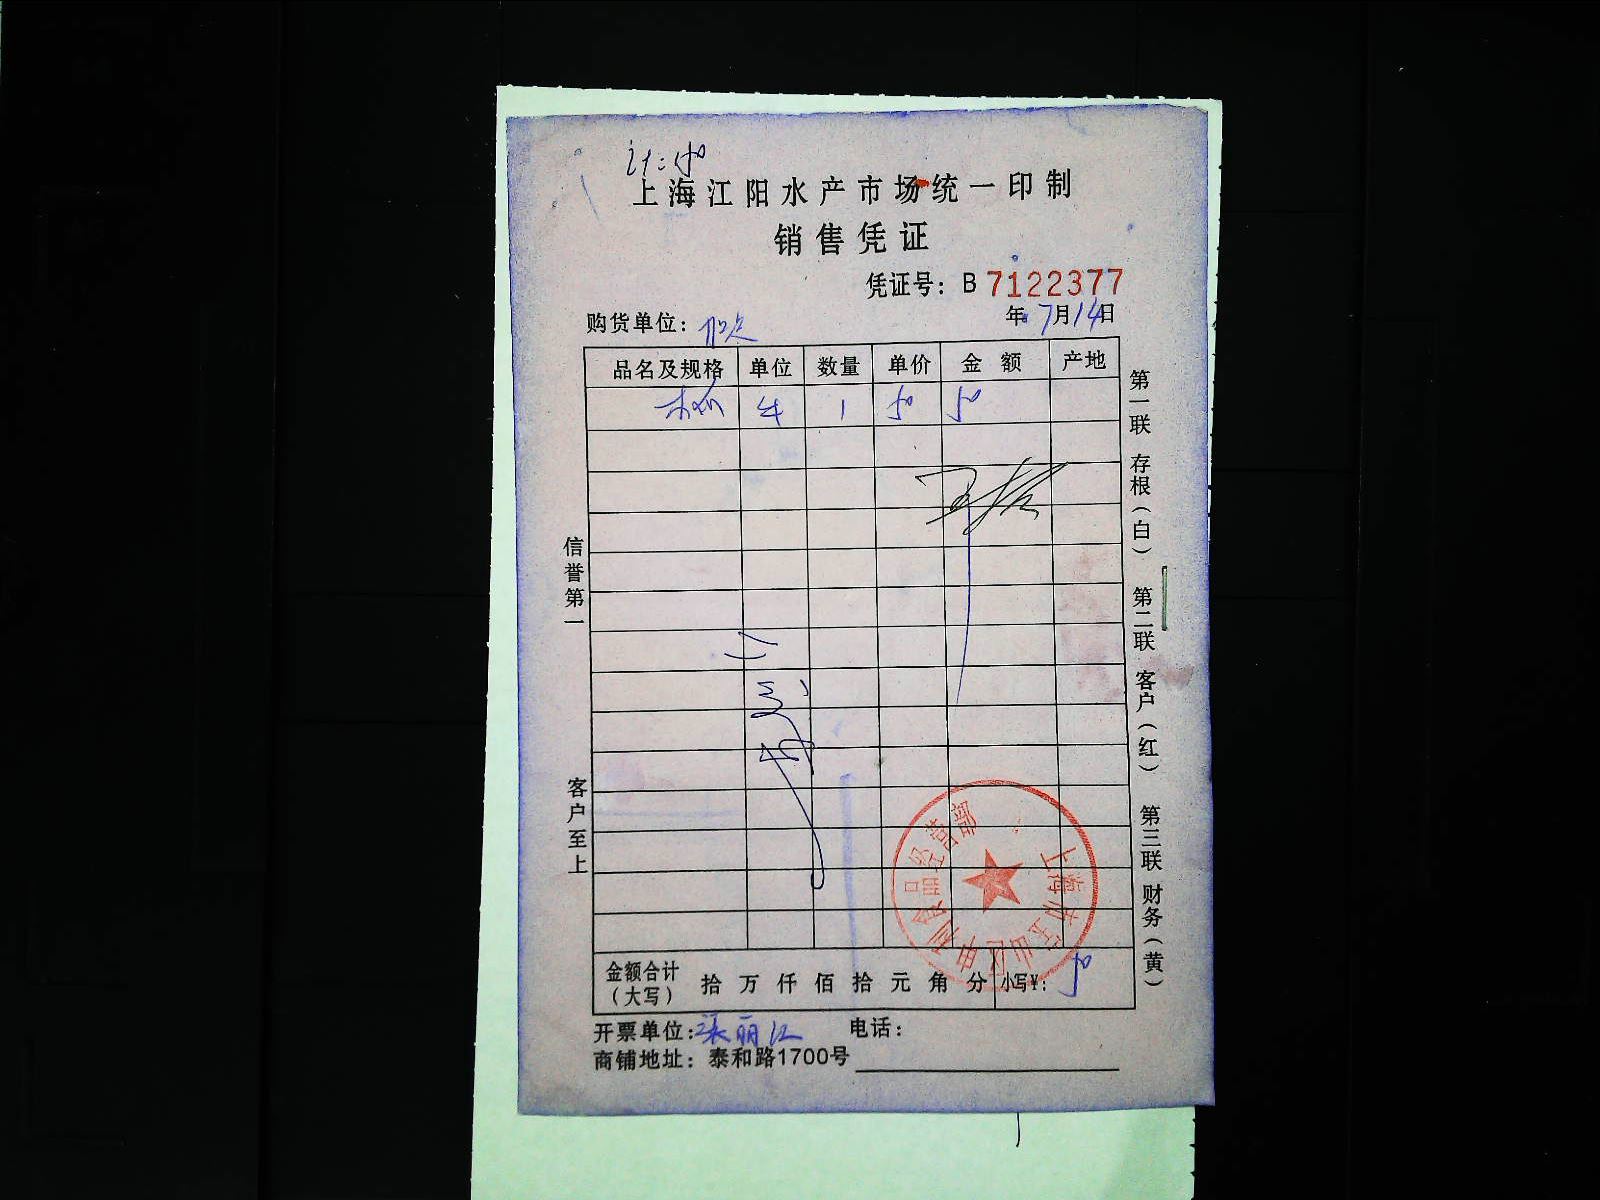 计:50
上海江阳水产市场统一印制
销售凭证
凭证号: B 7122377
购货单位:
年 7月14日
品名及规格 单位 数量 单价 金 额 产地
1 50 50
信誉第一
客户至上
第一联 存根(白) 第二联 客户(红) 第三联 财务(黄)
上海市宝山区申利食品经营部
金额合计(大写) 拾 万 仟 佰 拾 元 角 分 小写¥: 50
开票单位:张丽江 电话:
商铺地址: 泰和路1700号